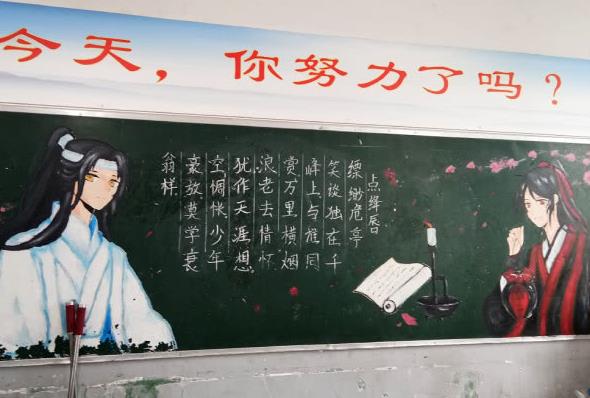 今天，你努力了吗？
点绛唇
缥缈危亭
笑谈独在千
峰上与谁同
赏万里横烟
浪老去情怀
犹作天涯想
空惆怅少年
豪放莫学衰
翁样